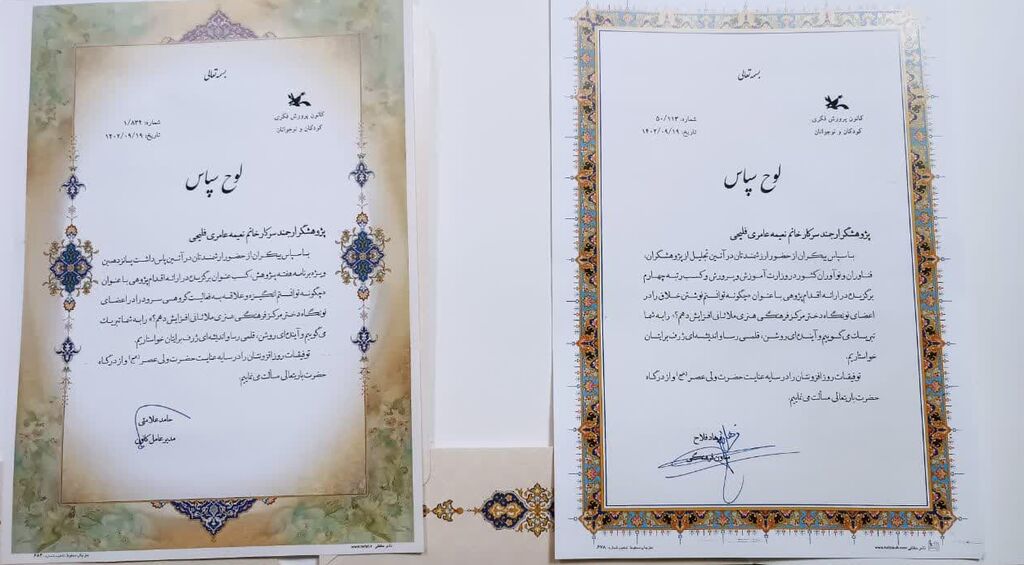 بسمه تعالی
کانون پرورش فکری
کودکان و نوجوانان
شماره: ۵۰/۱۱۳
تاریخ: ۱۴۰۲/۰۹/۱۹
لوح سپاس
پژوهشگر ارجمند سرکار خانم نعیمه عامری فلیحی
با سپاس بیکران از حضور ارزشمندتان در آئین تجلیل از پژوهشگران،
فناوران و نوآوران کشور در وزارت آموزش و پرورش و کسب رتبه چهارم
برگزیده در ارائه اقدام پژوهی با عنوان «چگونه توانستم نوشتن خلاق را در
اعضای نونگاه دختر مرکز فرهنگی هنری ملاثانی افزایش دهم؟» را به شما
تبریک می‌گوییم و آینده‌ای روشن، قلمی رسا و اندیشه‌ای ژرف برایتان
خواستاریم.
توفیقات روز افزونتان را در سایه عنایت حضرت ولی عصر (عج) و از درگاه
حضرت باریتعالی مسألت می‌نماییم.
فرهاد فلاح
معاون فرهنگی
بسمه تعالی
کانون پرورش فکری
کودکان و نوجوانان
شماره: ۱/۸۳۴
تاریخ: ۱۴۰۲/۰۹/۱۹
لوح سپاس
پژوهشگر ارجمند سرکار خانم نعیمه عامری فلیحی
با سپاس بیکران از حضور ارزشمندتان در آئین پاس داشت پانزدهمین
ویژه برنامه هفته پژوهش کسب عنوان برگزیده در ارائه اقدام پژوهی با عنوان
«چگونه توانستم انگیزه و علاقه به فعالیت گروهی سرود را در اعضای
نونگاه دختر مرکز فرهنگی هنری ملاثانی افزایش دهم؟» را به شما تبریک
می‌گوییم و آینده‌ای روشن، قلمی رسا و اندیشه‌ای ژرف برایتان خواستاریم.
توفیقات روز افزونتان را در سایه عنایت حضرت ولی عصر (عج) و از درگاه
حضرت باریتعالی مسألت می‌نماییم.
حامد علامتی
مدیر عامل کانون